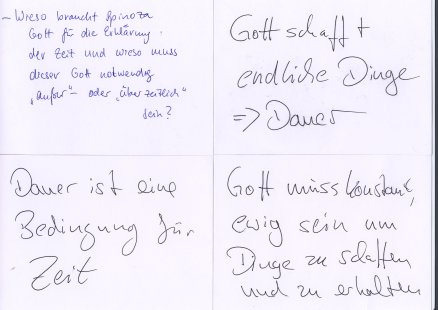 - Wieso braucht Spinoza
Gott für die Erklärung
der Zeit und wieso muss
dieser Gott notwendig
„außer"- oder „überzeitlich"
sein?
Gott schafft
endliche Dinge
=> Dauer
Dauer ist eine
Bedingung für
Zeit
Gott muss konstant,
ewig sein um
Dinge zu schaffen
und zu erhalten